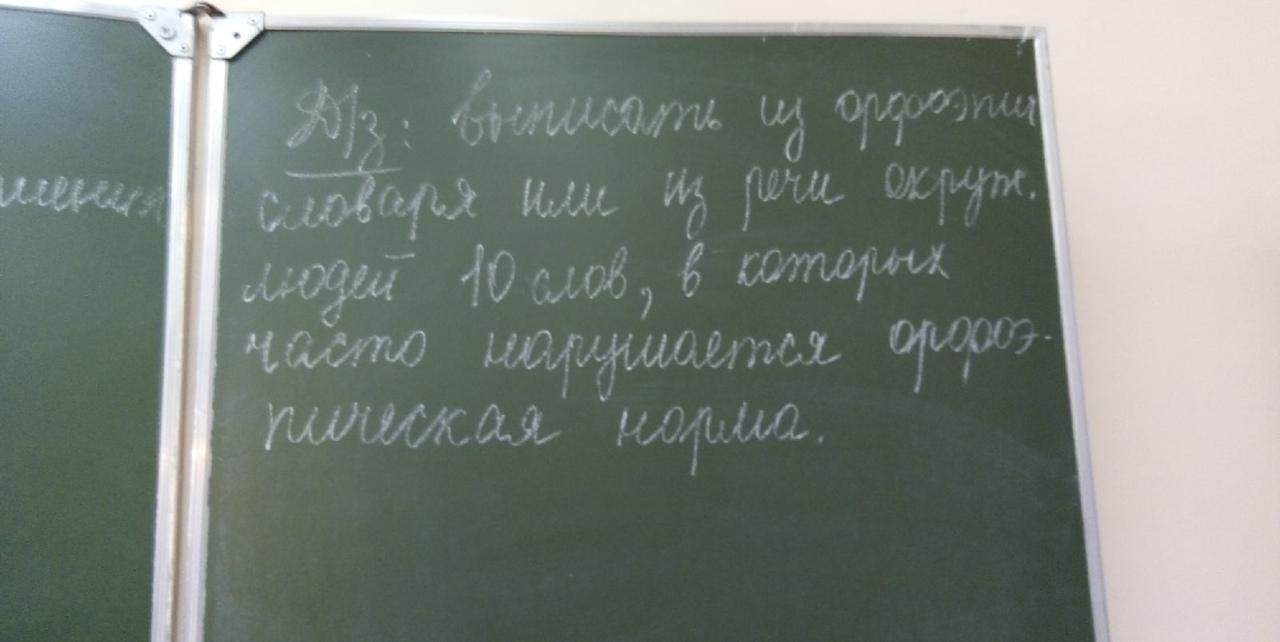 Д/з: выписать из орфоэпич
словаря или из речи окруж.
людей 10 слов, в которых
часто нарушается орфоэ-
пическая норма.